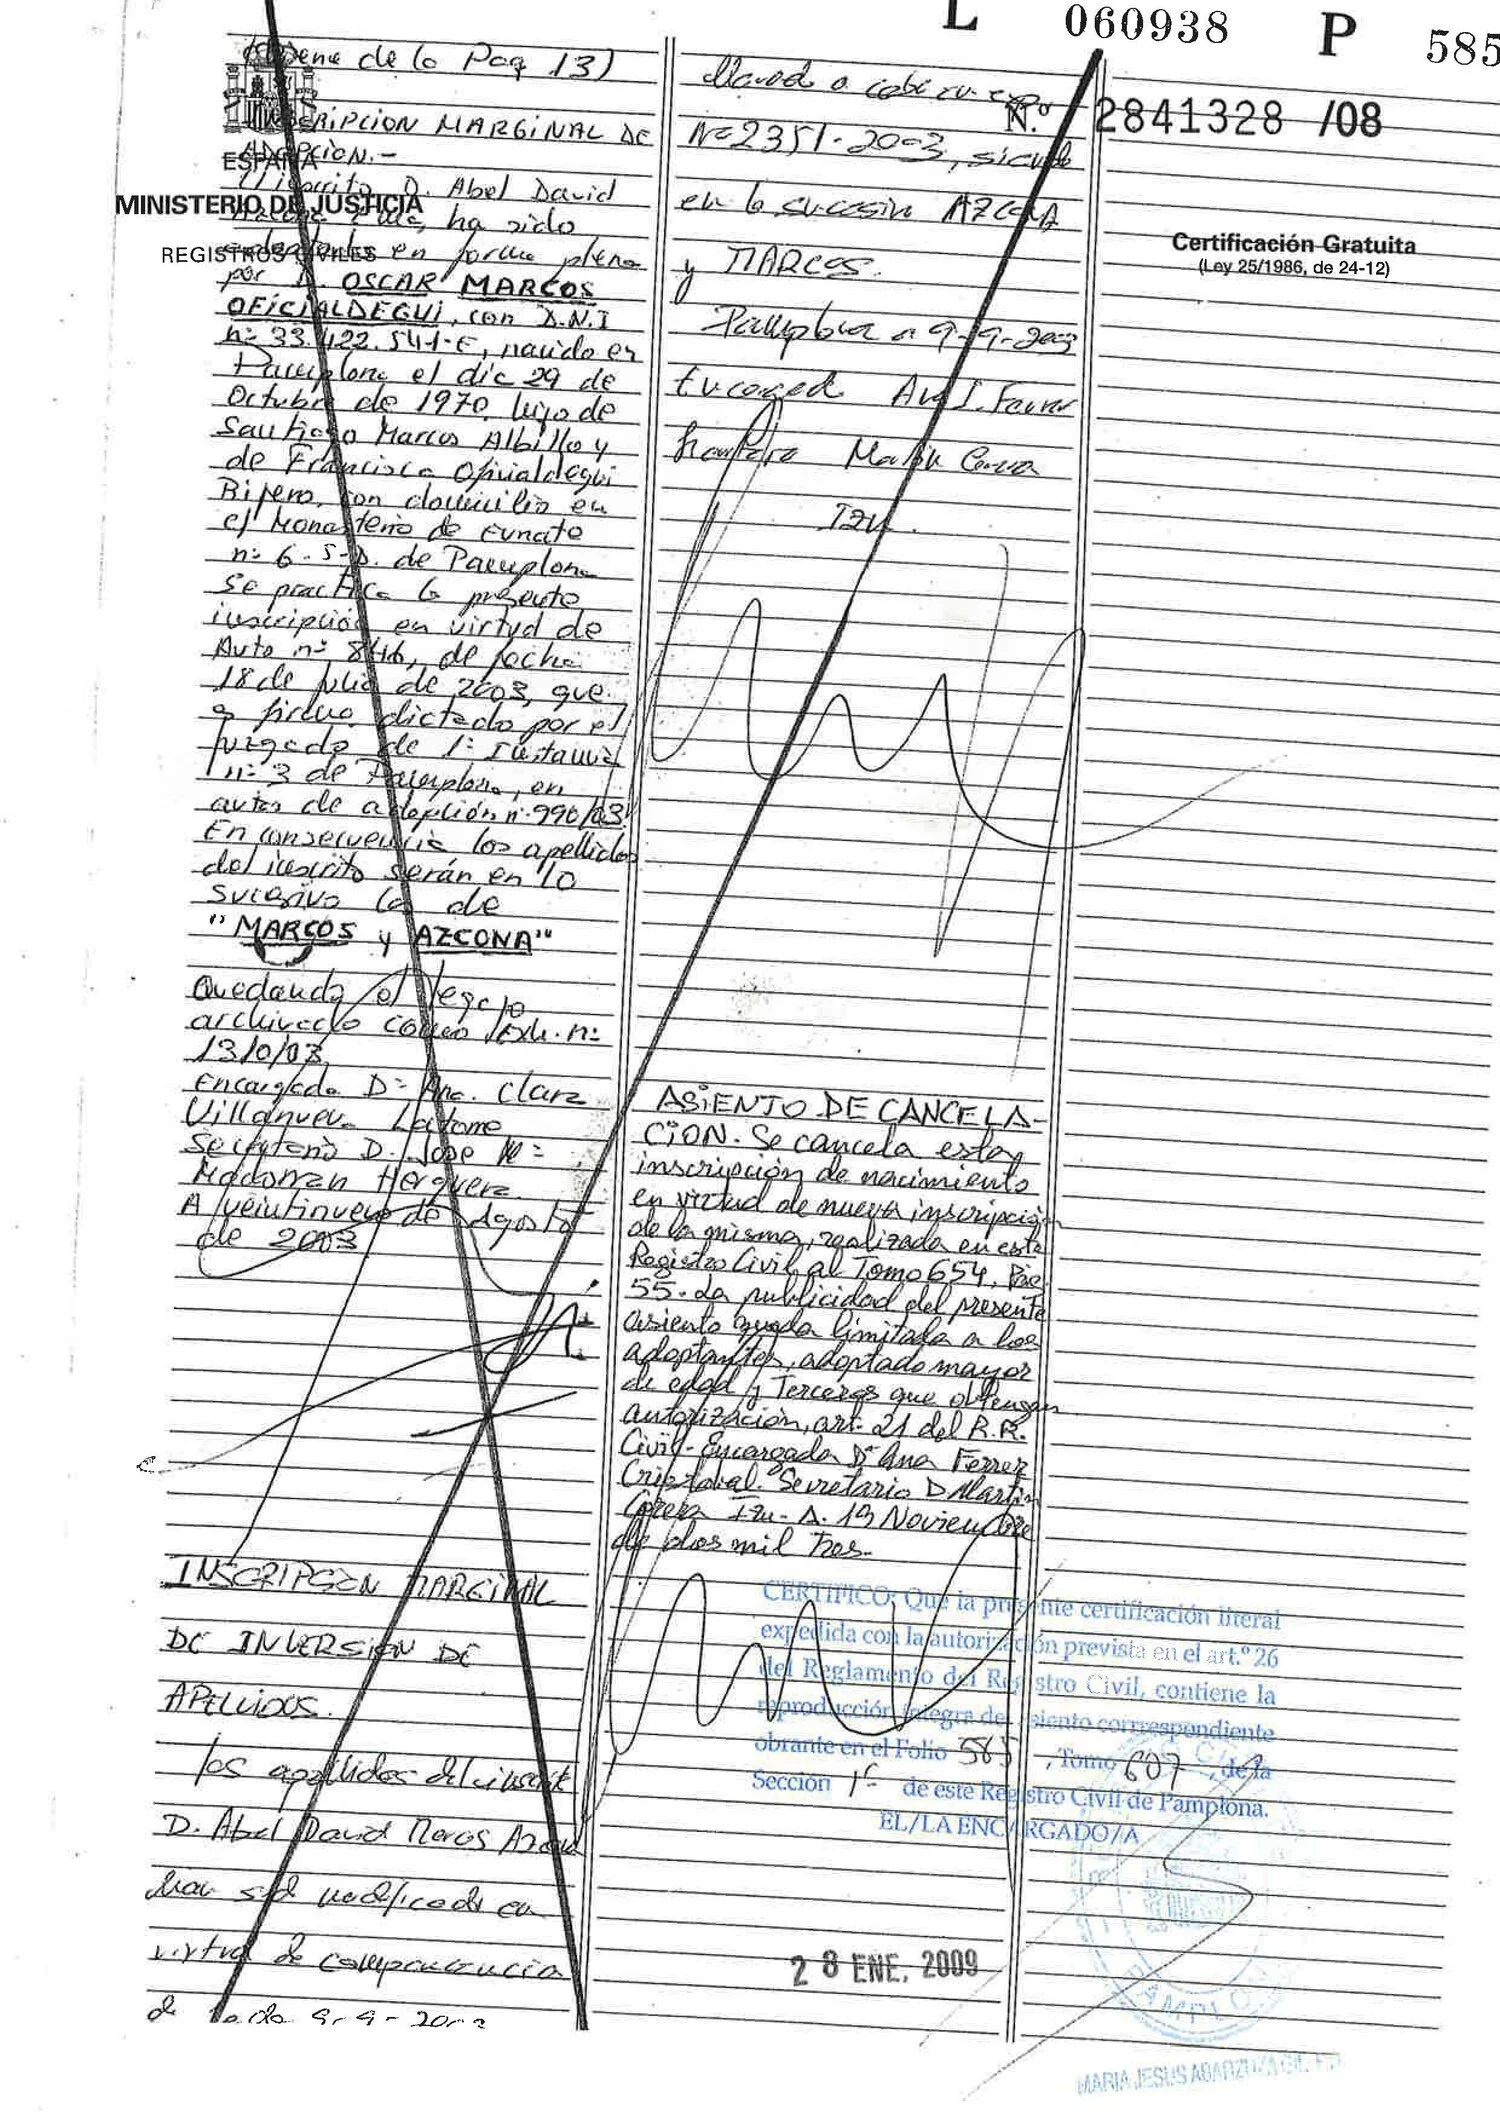 L 060938 P 585
N.º 2841328 /08
ESPAÑA
MINISTERIO DE JUSTICIA
REGISTROS CIVILES
Certificación Gratuita
(Ley 25/1986, de 24-12)
(Viene de la Pag 13)
INSCRIPCION MARGINAL DE
ADOPCION.-
El inscrito D. Abel David
Azcona, ha sido
adoptado en forma plena
por D. OSCAR MARCOS
OFICIALDEGUI, con D.N.I
nº 33.422.541-E, nacido en
Pamplona el dia 29 de
Octubre de 1970, hijo de
Santiago Marcos Albillo y
de Francisca Oficialdegui
Ripero, con domicilio en
c/ Monasterio de Eunate
nº 6-5-D. de Pamplona
Se practica la presente
inscripción en virtud de
Auto nº 846, de fecha
18 de julio de 2003, que
es firme dictado por el
Juzgado de 1ª Instancia
nº 3 de Pamplona, en
autos de adopción nº 990/03.
En consecuencia los apellidos
del inscrito serán en lo
sucesivo los de
"MARCOS y AZCONA"
Quedando el legajo
archivado como Exh. nº
1310/03
Encargada Dª Ana. Clara
Villanueva Latorre
Secretario D. Jose Mª
Madorran Herguera
A veintinueve de Agosto
de 2003
INSCRIPCION MARGINAL
DE INVERSION DE
APELLIDOS.
los apellidos del inscrito
D. Abel David Marcos Azcona
han sido modificados en
virtud de comparecencia
de fecha 9-9-2003
llevado a cabo en expe
Nº 2351-2003, siendo
en lo sucesivo AZCONA
y MARCOS.
Pamplona a 9-9-2003
Encargada Ana I. Ferrer
Martin Corera
Izu.
ASIENTO DE CANCELA-
CION. Se cancela esta
inscripción de nacimiento
en virtud de nueva inscripción
de la misma, realizada en este
Registro Civil al Tomo 654, Pág
55. La publicidad del presente
asiento queda limitada a los
adoptantes, adoptado mayor
de edad y Terceros que obtengan
autorización, art. 21 del R.R.
Civil- Encargada Dª Ana Ferrer
Cristobal. Secretario D Martin
Corera Izu- A. 19 Noviembre
de dos mil Tres.
CERTIFICO: Que la presente certificación literal
expedida con la autorización prevista en el art.º 26
del Reglamento del Registro Civil, contiene la
reproducción íntegra del asiento corrrespondiente
obrante en el Folio 585, Tomo 607, de la
Sección 1ª de este Registro Civil de Pamplona.
EL/LA ENCARGADO/A
28 ENE. 2009
PAMPLONA
MARIA JESUS